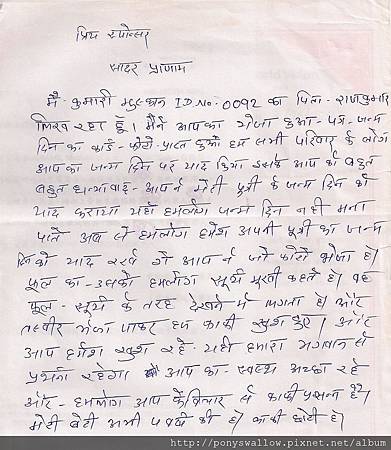 प्रिय स्पोन्सर
सादर प्रणाम
मै कुमारी मुस्कान ID No. 0092 का पिता - राजकुमार
लिख रहा हूँ। मैंने आपका भेजा हुआ - पत्र - जन्म
दिन का कार्ड - फोटो प्राप्त हुआ हम सभी परिवार के लोग
आपका जन्म दिन पर याद किया इसके आप को बहुत
बहुत धन्यावाद - आपने मेरी पुत्री के जन्म दिन को
याद कराया यहाँ हमलोग जन्म दिन नही मना
पाते अब से हमलोग हमेश अपनी पुत्री का जन्म
दिन को याद रखे गे आप ने जो फोटो भेजा है।
फूल का - उसको हमलोग सूर्य मूखी कहते है। वह
फूल - सूर्य के तरह देखने में लगता है। और
तस्वीर पाकर हम काफी खुश हुए। और
आप हमेश खुश रहे यही हमारा भगवान से
प्रर्थना रहेगा आप का - स्वस्थ अच्छा रहे
और - हमलोग आप के विचार से काफी प्रसन्न है।
मेरी बेटी अभी वर्ष की है। काफी छोटी है।
http://ponyswallow.pixnet.net/album